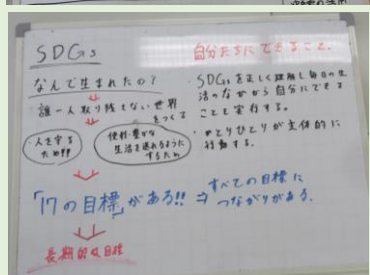 SDGs
なんで生まれたの?
誰一人取り残さない世界
をつくる
・人を守る
ため!!
便利・豊かな
生活を送れるように
するため
「17の目標」がある!! ⇒ すべての目標に
つながりがある。
長期的な目標
自分たちにできること。
・SDGsを正しく理解し毎日の生
活のなかから自分にできる
ことを実行する。
・ひとりひとりが主体的に
行動する。